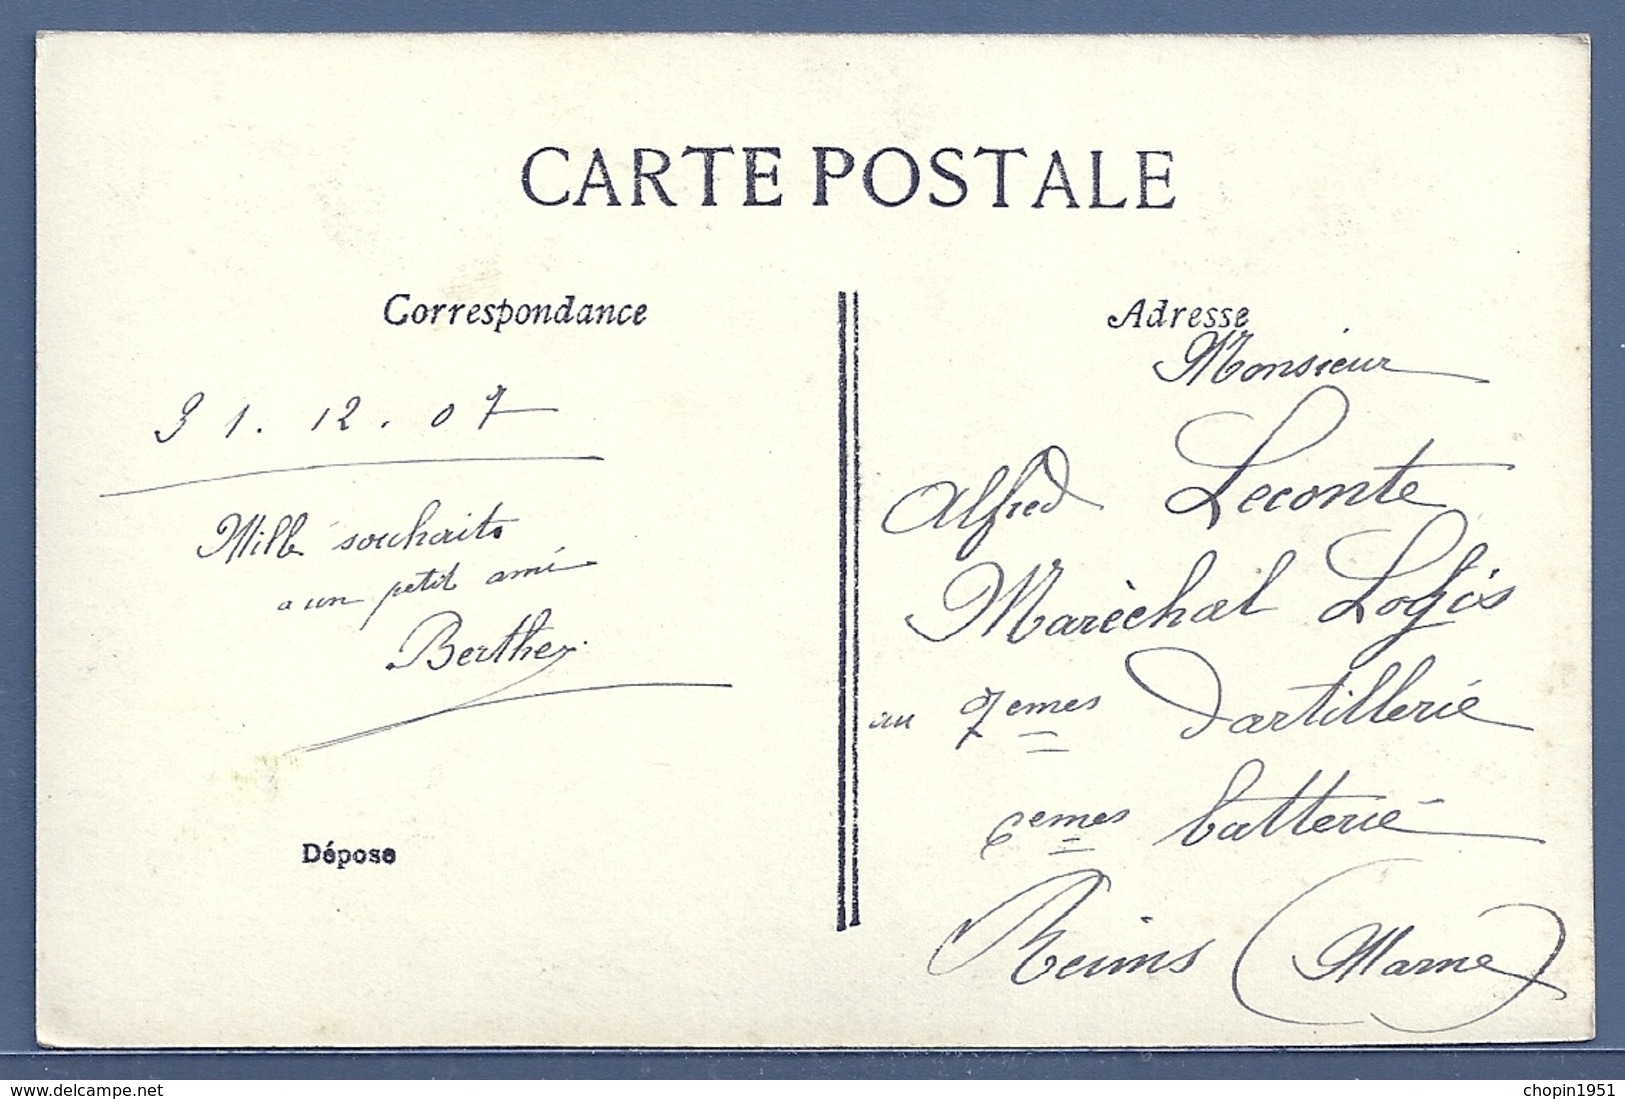 CARTE POSTALE
Correspondance
31.12.07
Mille souhaits
a un petit ami
Berthe
Déposé
Adresse
Monsieur
Alfred Leconte
Marèchal Logis
au 7emes dartillerie
6emes batterie
Reims (Marne)
delcampe.net
chopin1951